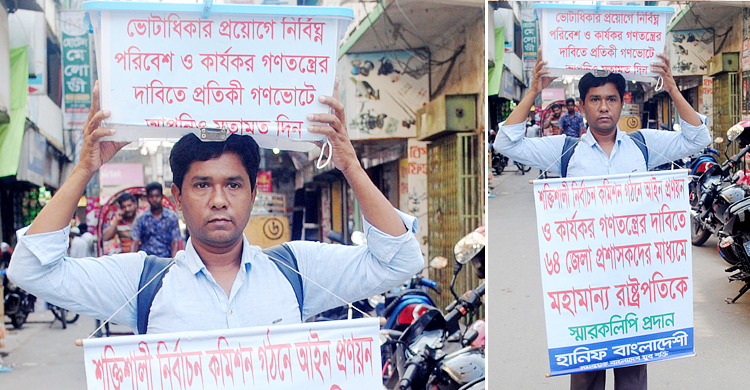 ভোটাধিকার প্রয়োগে নির্বিঘ্ন
পরিবেশ ও কার্যকর গণতন্ত্রের
দাবিতে প্রতিকী গণভোটে
আপনিও মতামত দিন
শক্তিশালী নির্বাচন কমিশন গঠনে আইন প্রণয়ন
ভোটাধিকার প্রয়োগে নির্বিঘ্ন
পরিবেশ ও কার্যকর গণতন্ত্রের
দাবিতে প্রতিকী গণভোটে
আপনিও মতামত দিন
শক্তিশালী নির্বাচন কমিশন গঠনে আইন প্রণয়ন
ও কার্যকর গণতন্ত্রের দাবিতে
৬৪ জেলা প্রশাসকদের মাধ্যমে
মহামান্য রাষ্ট্রপতিকে
স্মারকলিপি প্রদান
হানিফ বাংলাদেশী